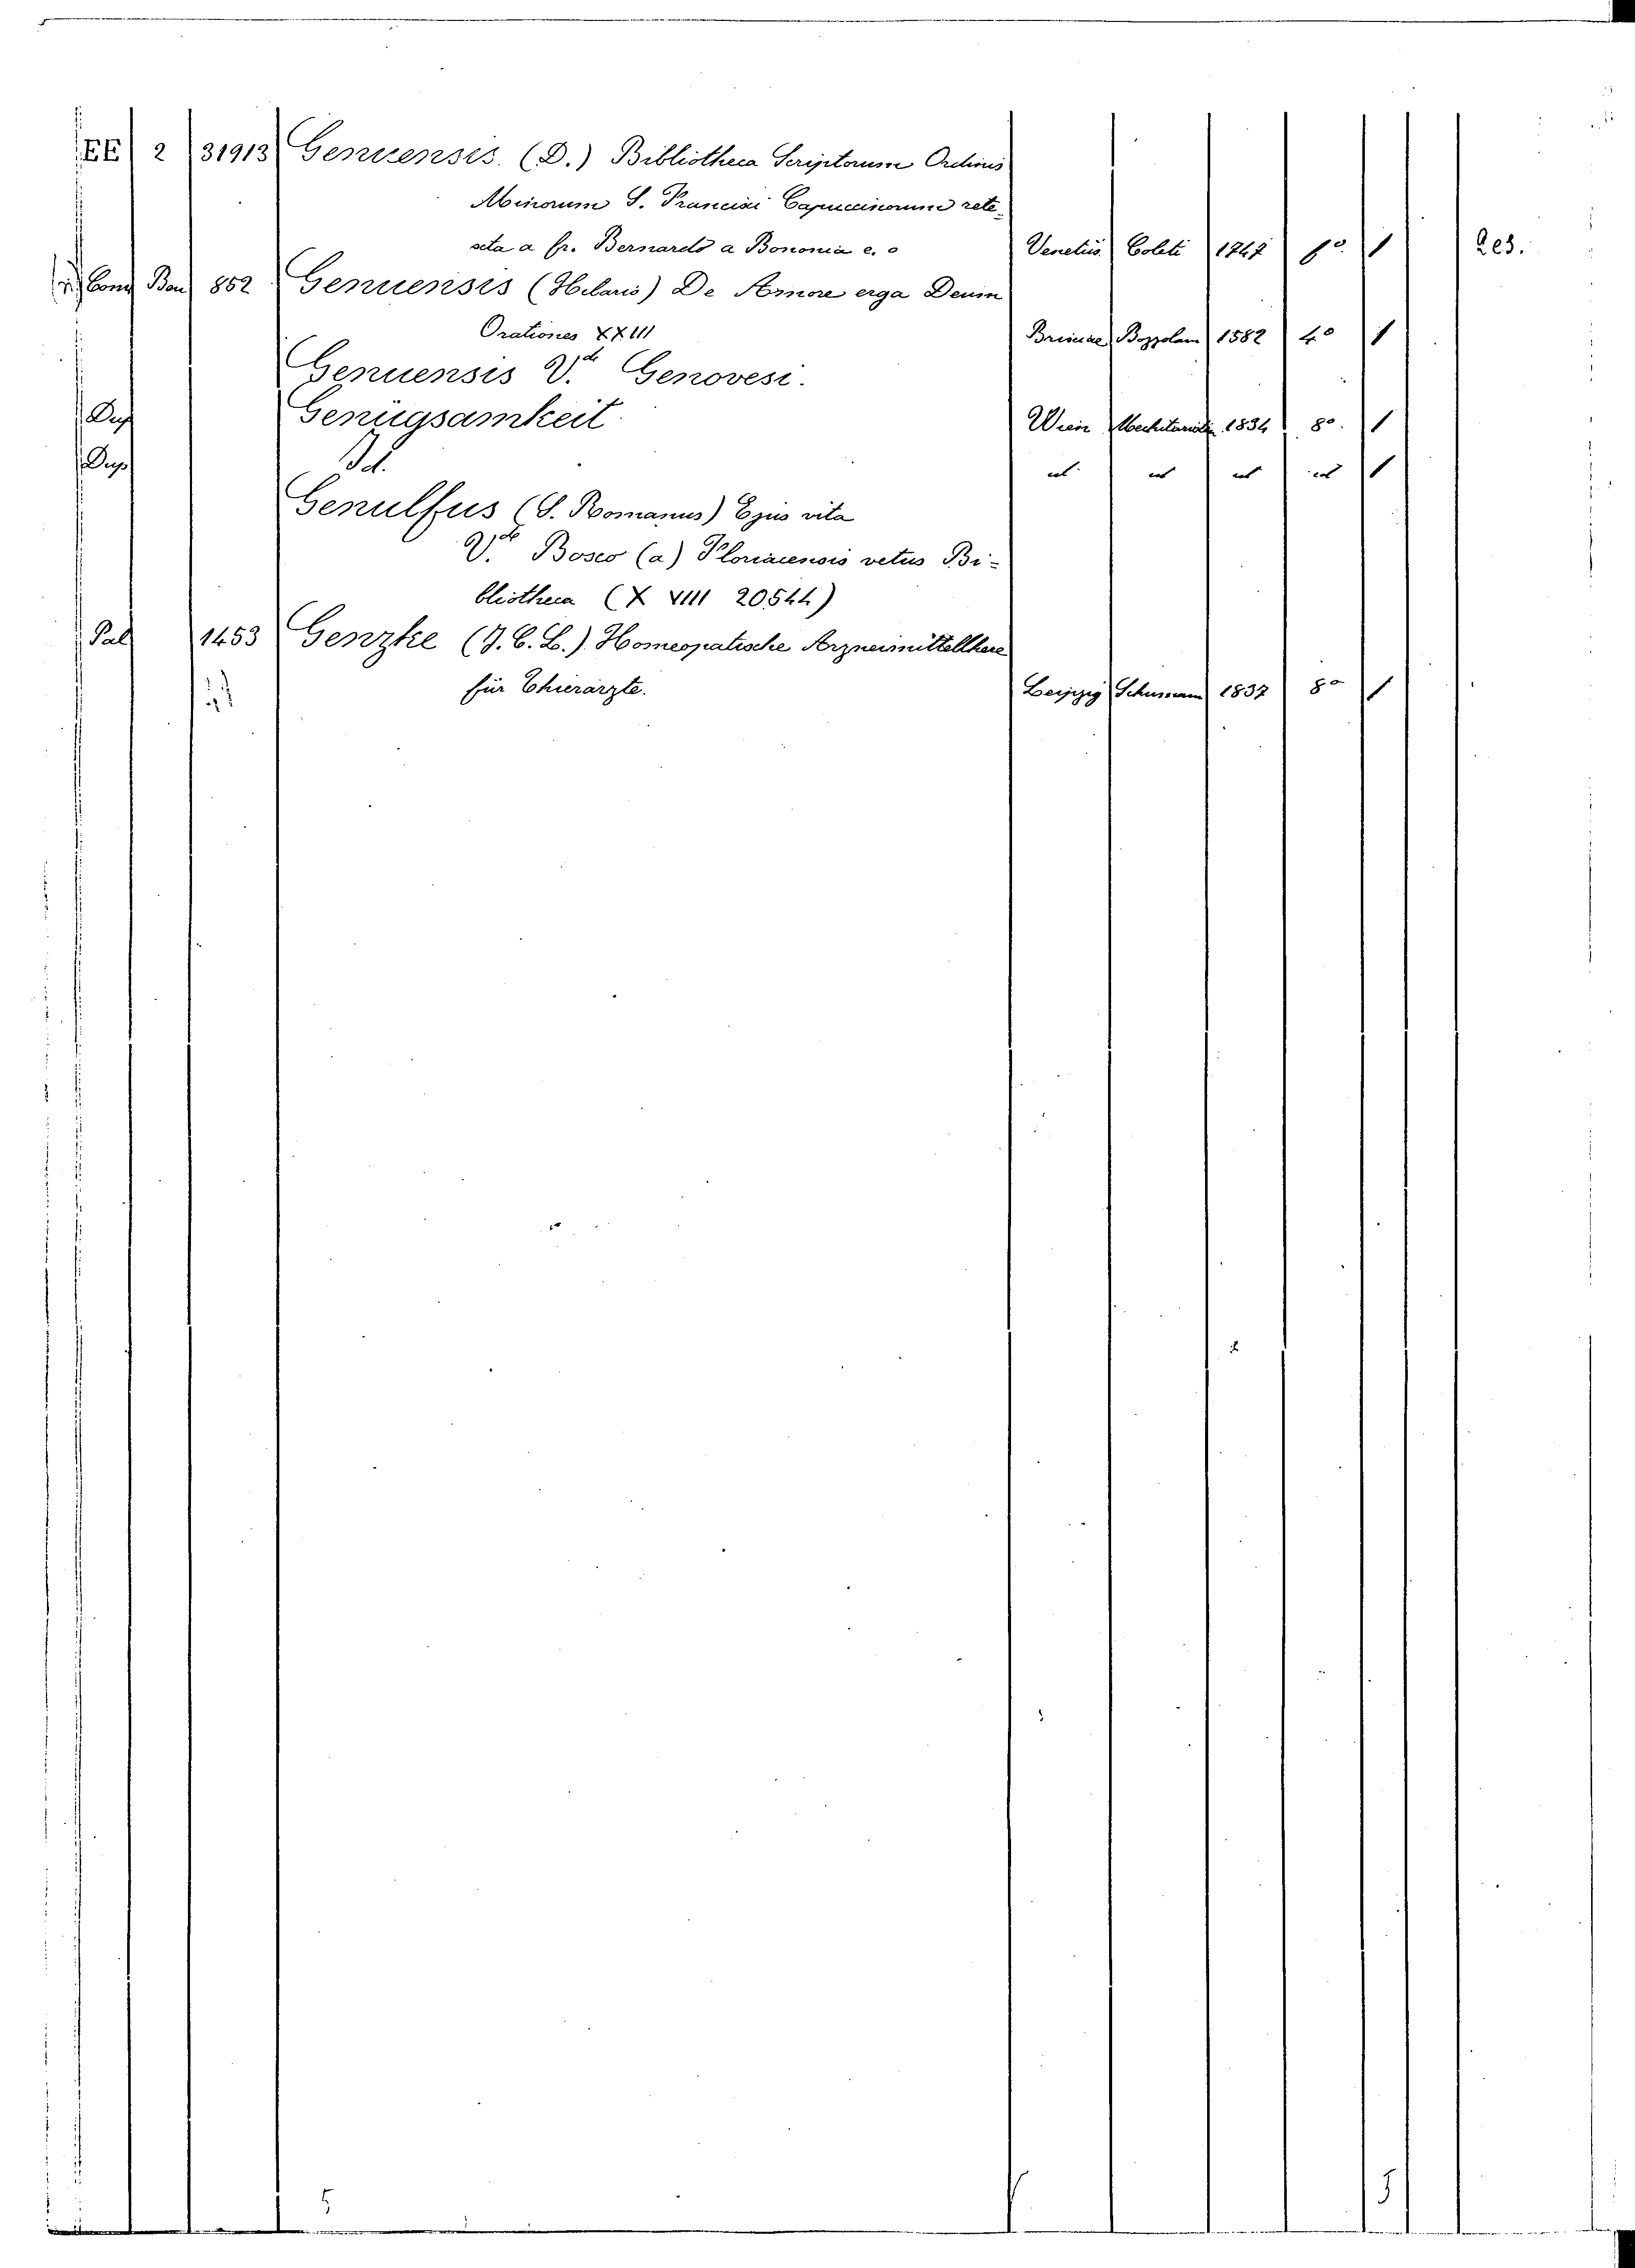 EE 2 31913 Genuensis (D.) Bibliotheca Scriptorum Ordinis
Minorum S. Francisci Capuccinorum rete-
xta a fr. Bernardo a Bononia e. o Venetiis Coleti 1747 f° 1 Res.
Conv Ben 852 Genuensis (Hilaris) De Amore erga Deum
Orationes XXIII Brixiae Bozzolam 1582 4° 1
Genuensis V.de Genovesi.
Dup Genügsamkeit Wien Mechitaristin 1834 8°. 1
Dup Id. 1
Genulfus (S. Romanus) Ejus vita
V.de Bosco (a) Floriacensis vetus Bi-
bliotheca (X VIII 20544)
Pal 1453 Genzke (J. C. L.) Homeopatische Arzneimittellhere
für Thierärzte. Leipzig Schumann 1837 8° 1
5 5